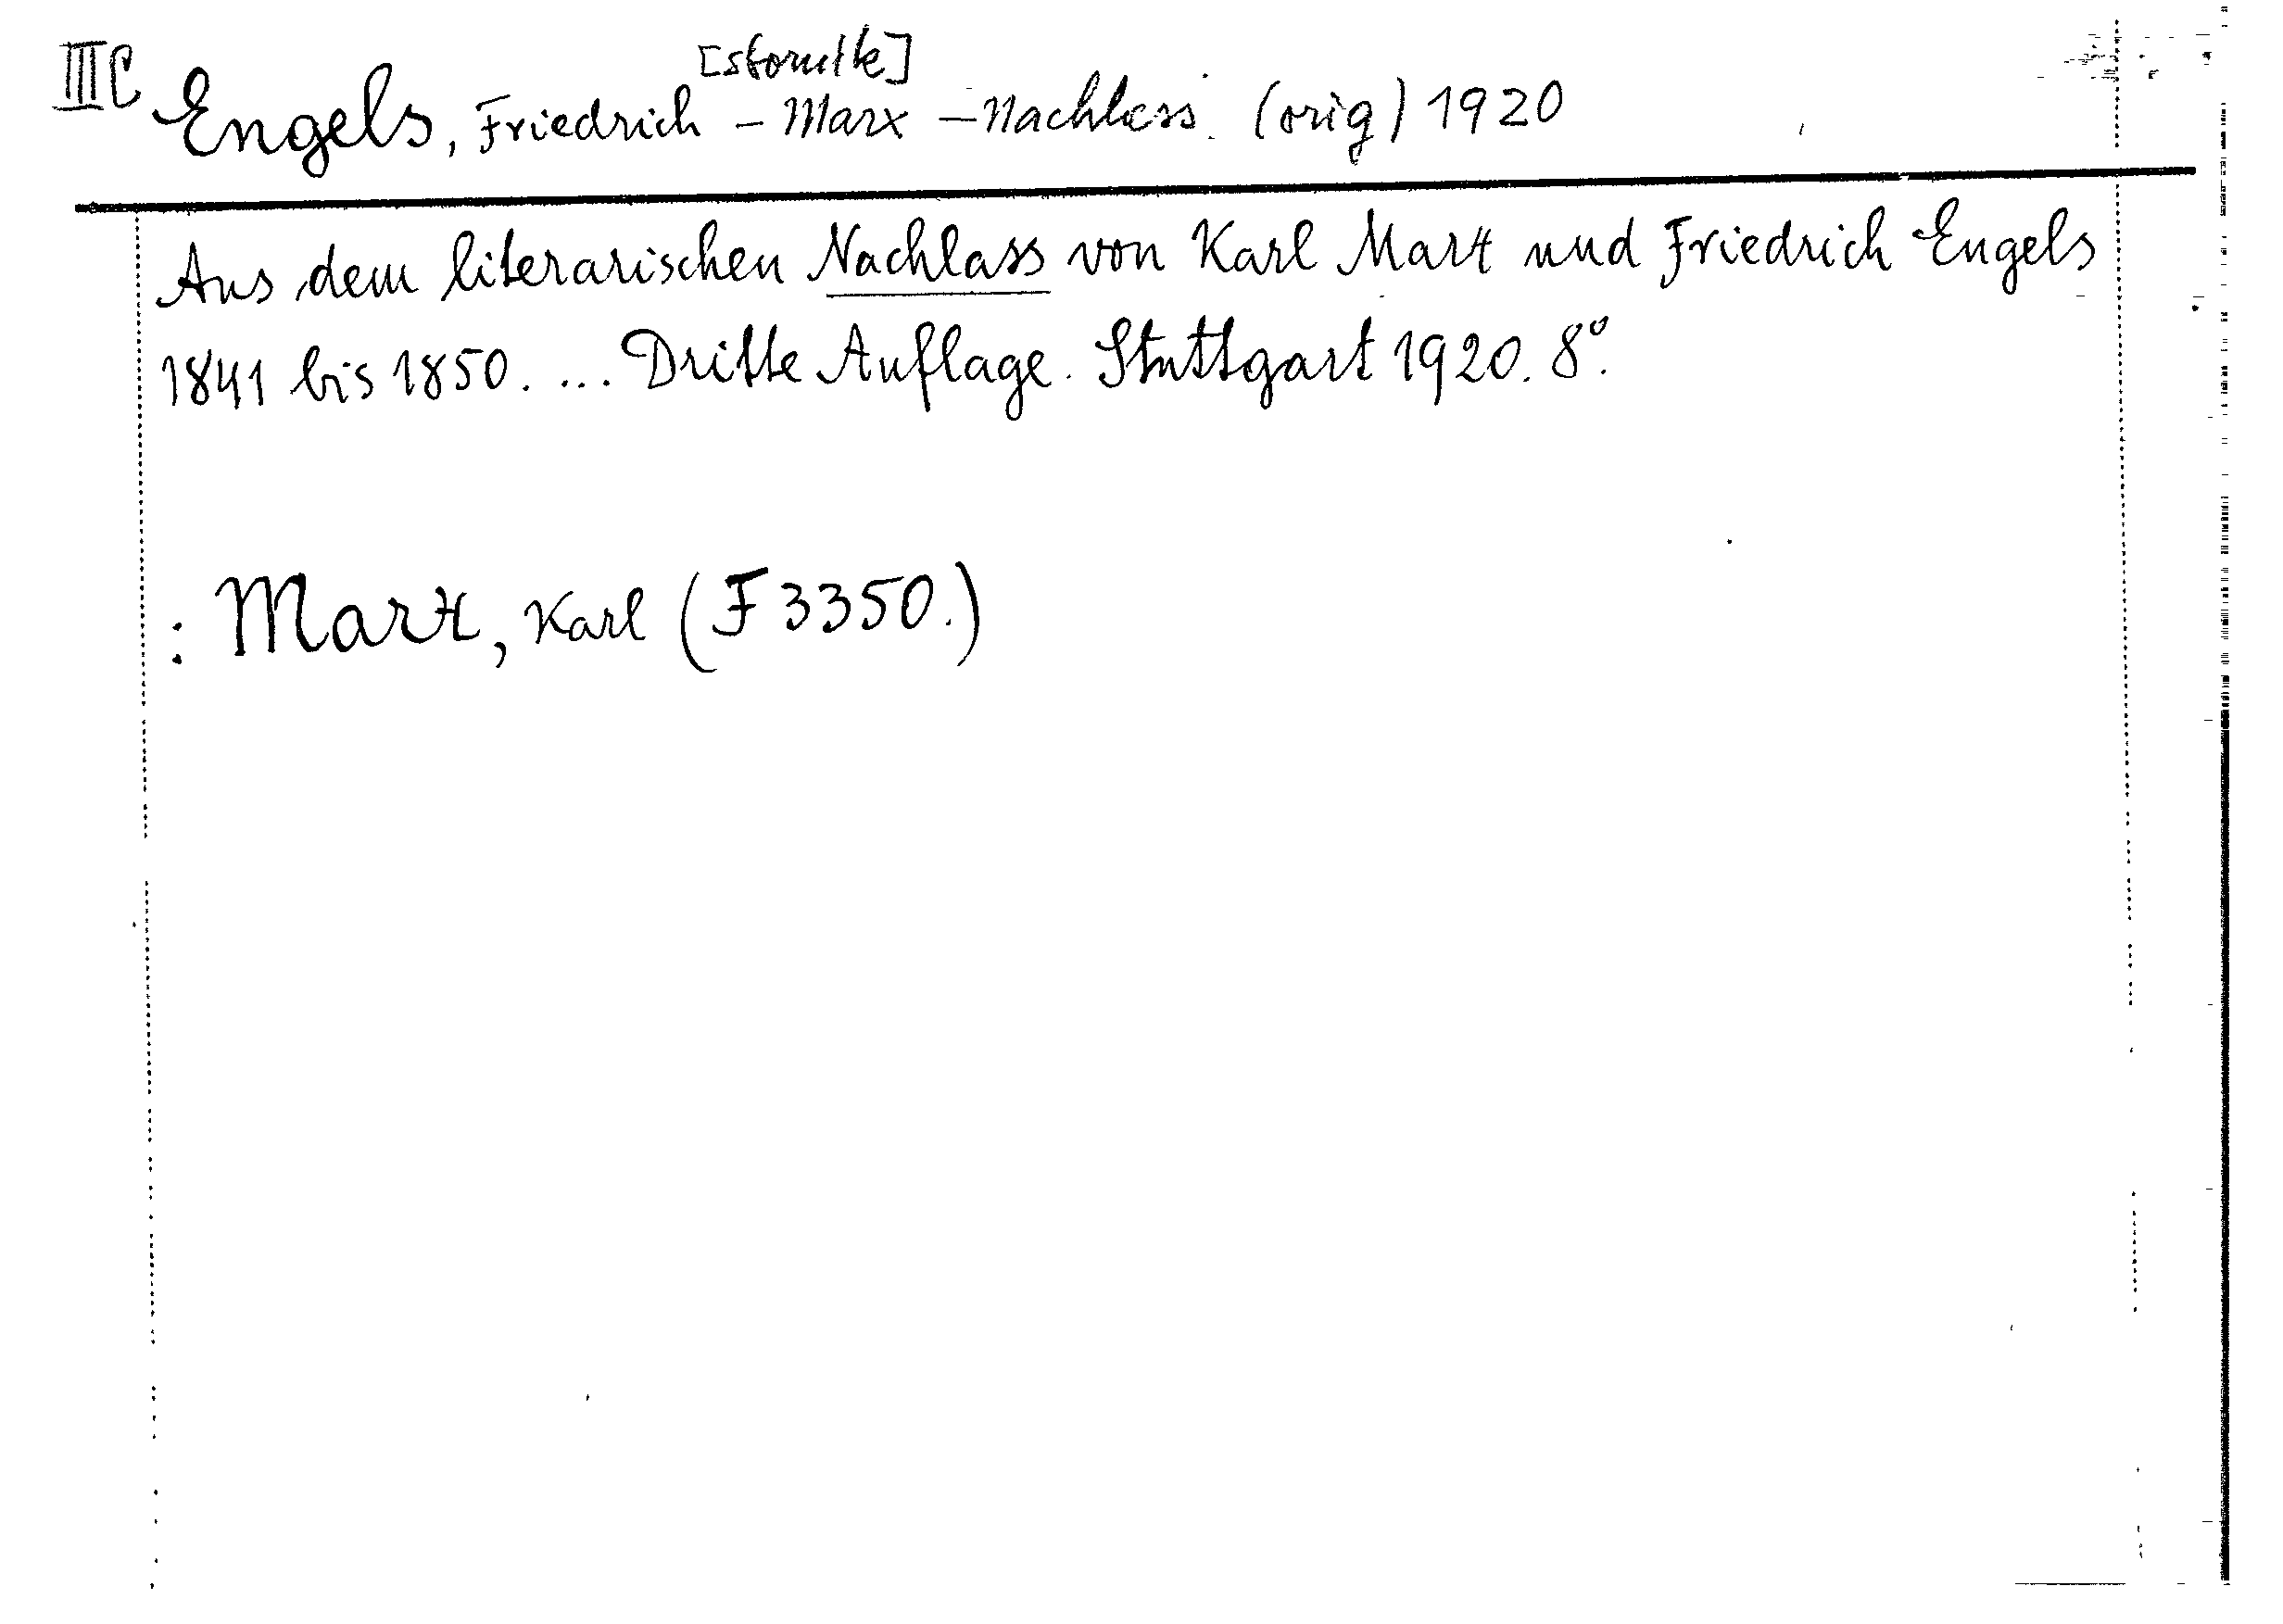 IIIC Engels, Friedrich - Marx - Nachlass. (orig) 1920
Aus dem literarischen Nachlass von Karl Marx und Friedrich Engels
1841 bis 1850. ... Dritte Auflage. Stuttgart 1920. 8°.
: Marx, Karl (F 3350.)